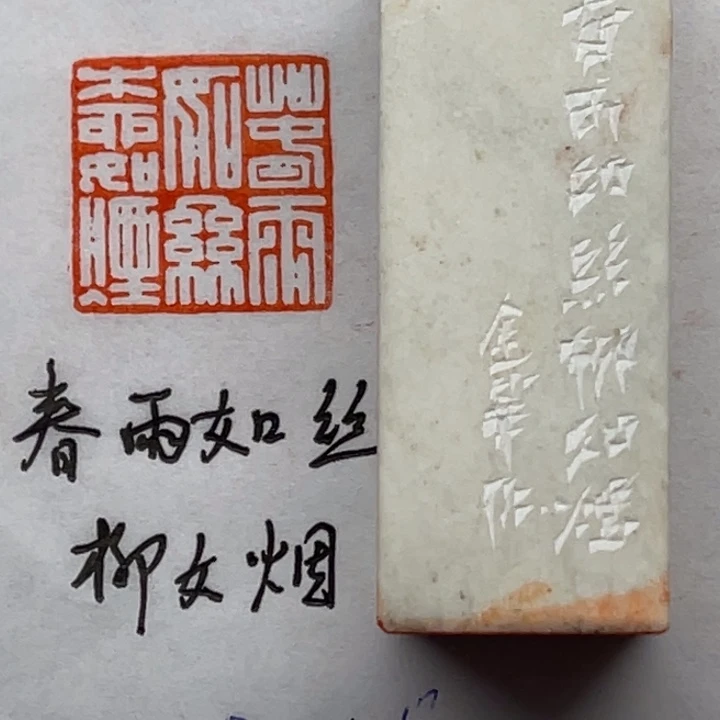 春雨
如絲
柳如煙
春雨如丝
柳女烟
春雨如絲柳如煙
金華作